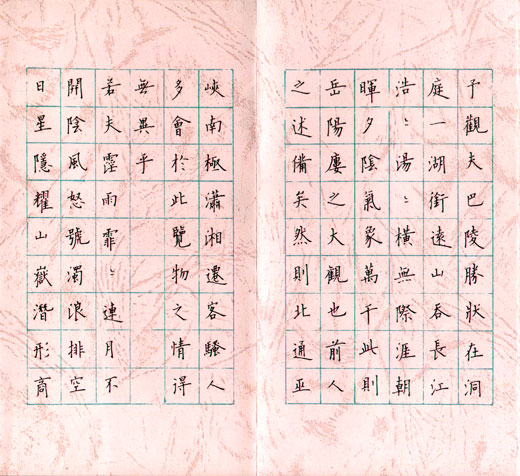 予觀夫巴陵勝狀在洞
庭一湖銜遠山吞長江
浩〻湯〻橫無際涯朝
暉夕陰氣象萬千此則
岳陽廔之大觀也前人
之述備矣然則北通巫
峽南極瀟湘遷客騷人
多會於此覽物之情得
無異乎
若夫霪雨霏〻連月不
開陰風怒號濁浪排空
日星隱耀山嶽潛形商